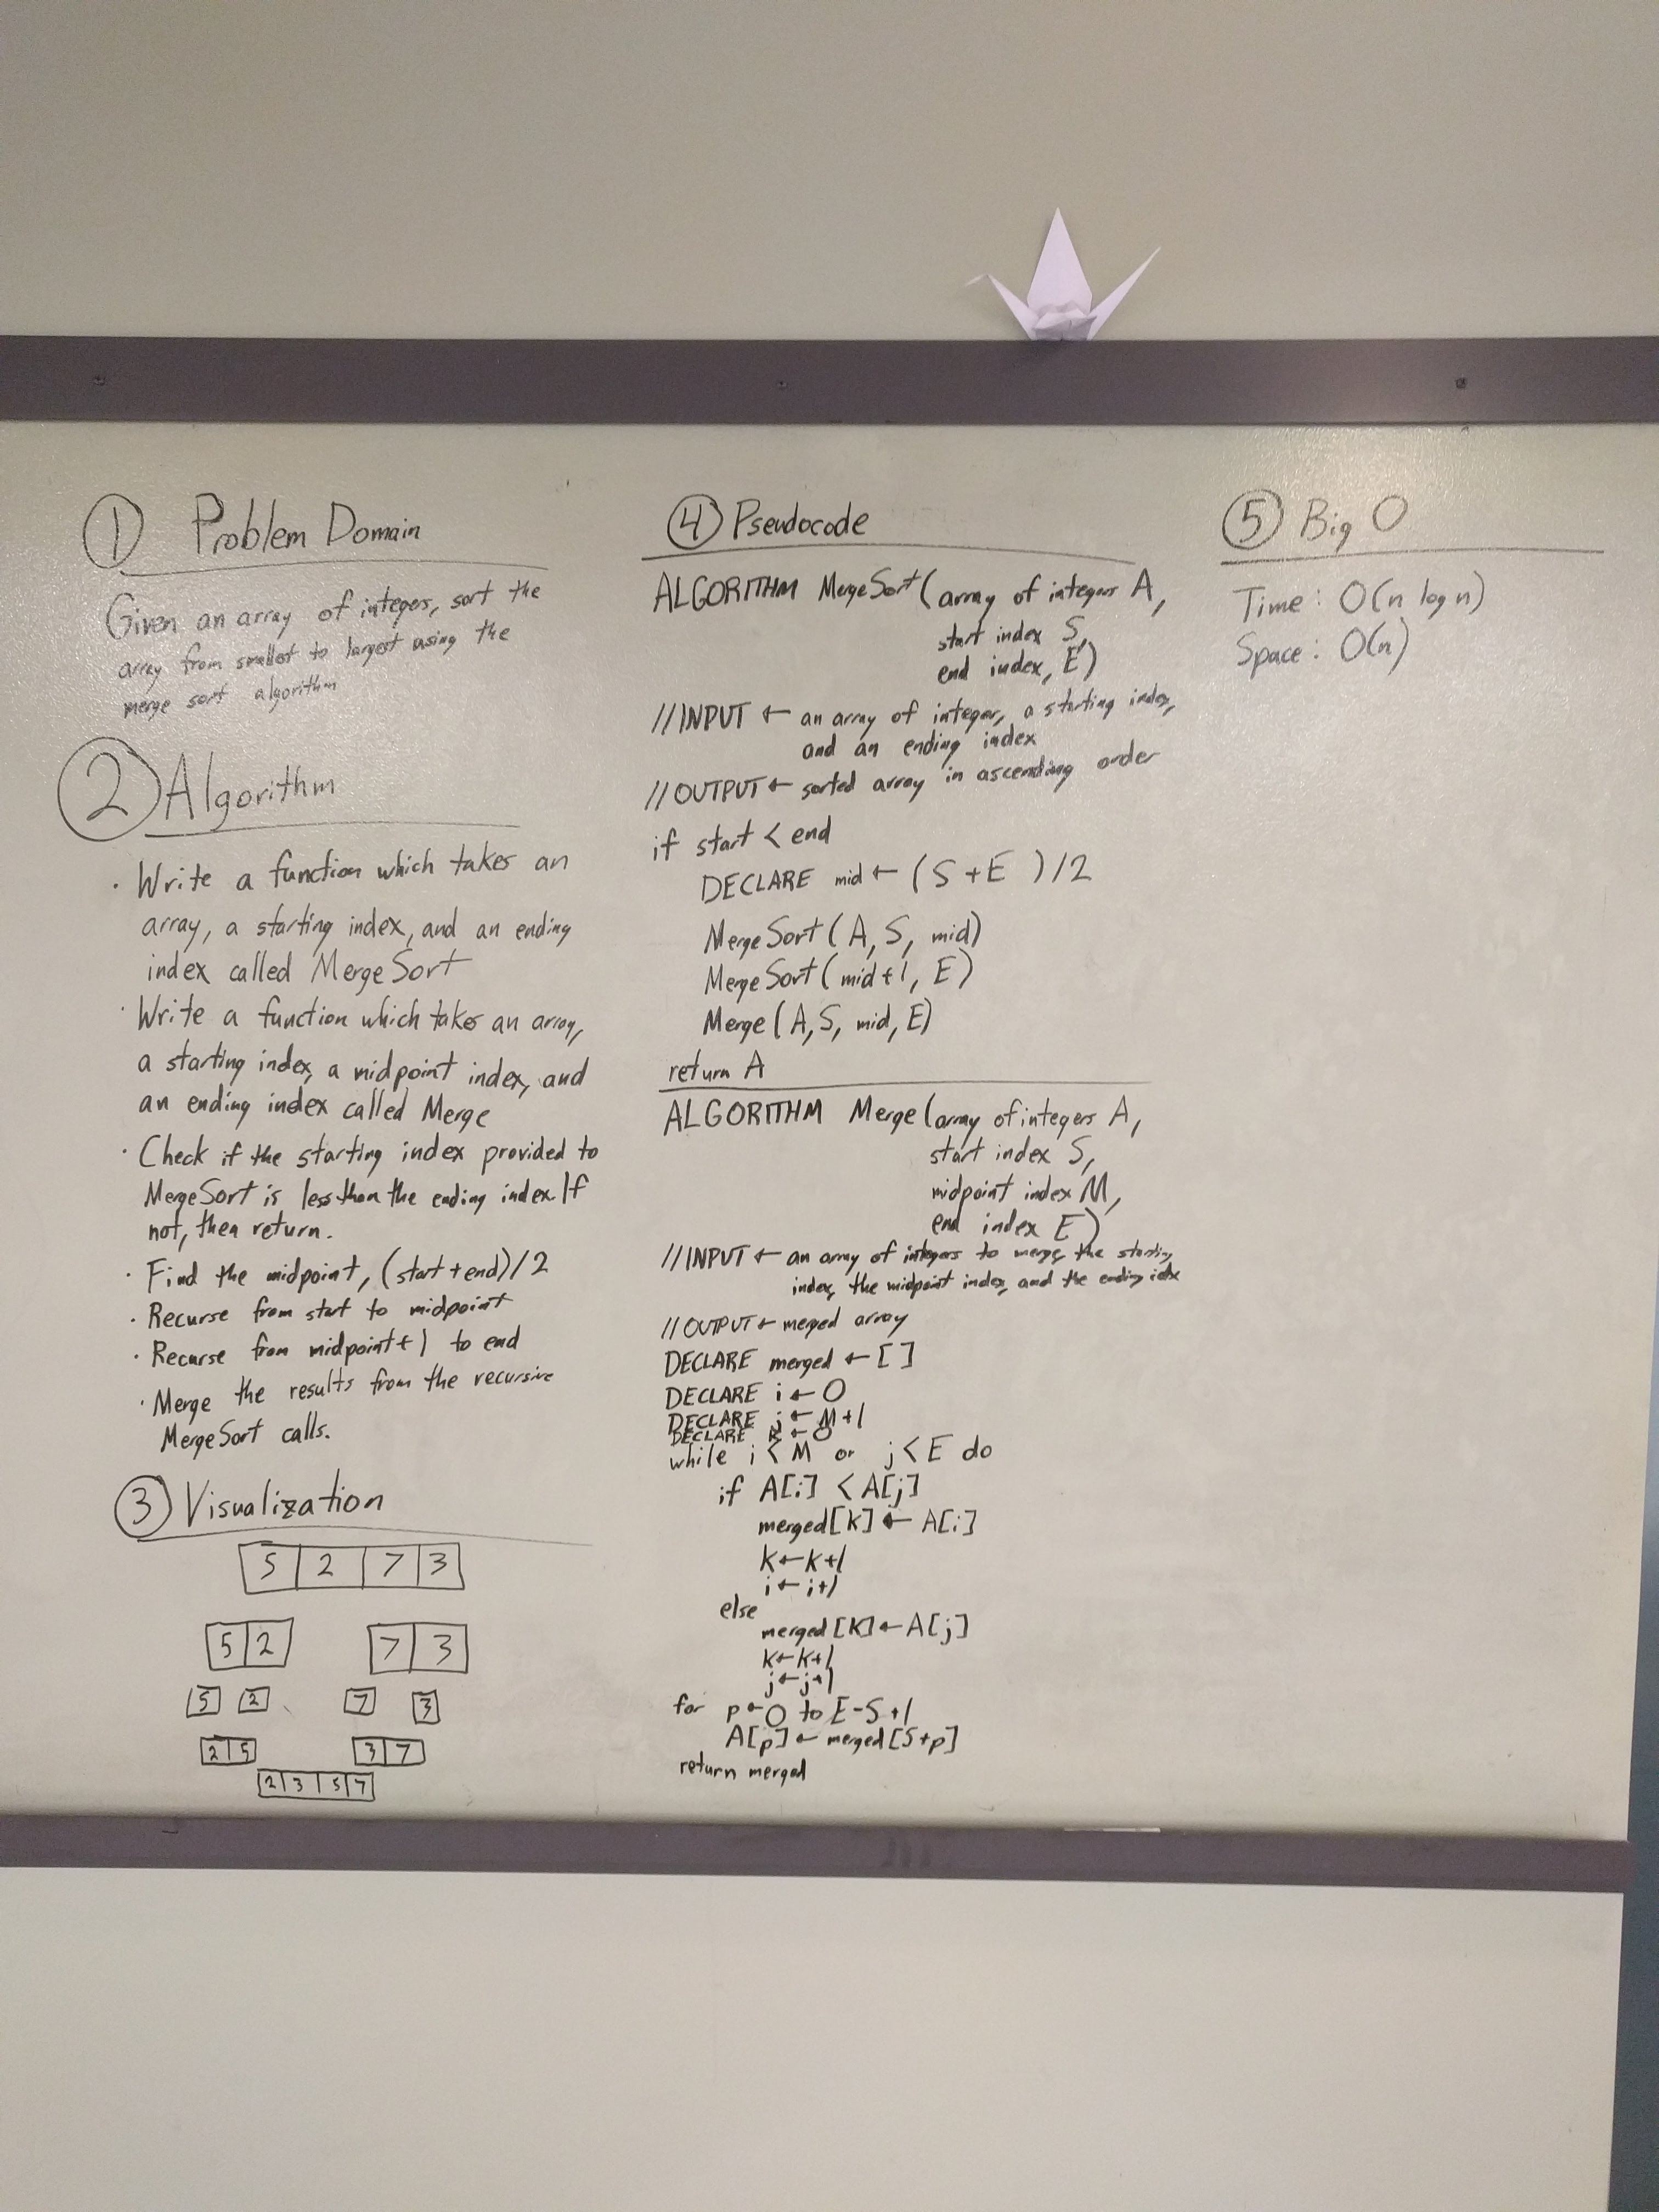 ① Problem Domain
Given an array of integers, sort the
array from smallest to largest using the
merge sort algorithm
② Algorithm
· Write a function which takes an
array, a starting index, and an ending
index called MergeSort
· Write a function which takes an array,
a starting index, a midpoint index, and
an ending index called Merge
· Check if the starting index provided to
MergeSort is less than the ending index. If
not, then return.
· Find the midpoint, (start+end)/2
· Recurse from start to midpoint
· Recurse from midpoint+1 to end
· Merge the results from the recursive
MergeSort calls.
③ Visualization
5 2 7 3
5 2 7 3
5 2 7 3
2 5 3 7
2 3 5 7
④ Pseudocode
ALGORITHM MergeSort(array of integers A,
start index S,
end index, E)
//INPUT ← an array of integer, a starting index,
and an ending index
//OUTPUT ← sorted array in ascending order
if start < end
DECLARE mid ← (S+E )/2
MergeSort(A, S, mid)
MergeSort(mid+1, E)
Merge(A, S, mid, E)
return A
ALGORITHM Merge(array of integers A,
start index S,
midpoint index M,
end index E)
//INPUT ← an array of integers to merge, the starting
index, the midpoint index, and the ending idx
//OUTPUT ← merged array
DECLARE merged ← []
DECLARE i ← 0
DECLARE j ← M+1
DECLARE k ← 0
while i < M or j < E do
if A[i] < A[j]
merged[k] ← A[i]
k ← k+1
i ← i+1
else
merged[k] ← A[j]
k ← k+1
j ← j+1
for p ← 0 to E-S+1
A[p] ← merged[S+p]
return merged
⑤ Big O
Time: O(n log n)
Space: O(n)